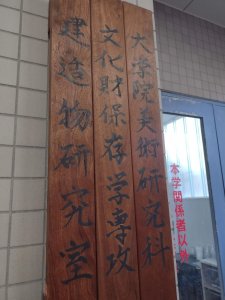 大学院美術研究科
文化財保存学専攻
建造物研究室
本学関係者以外